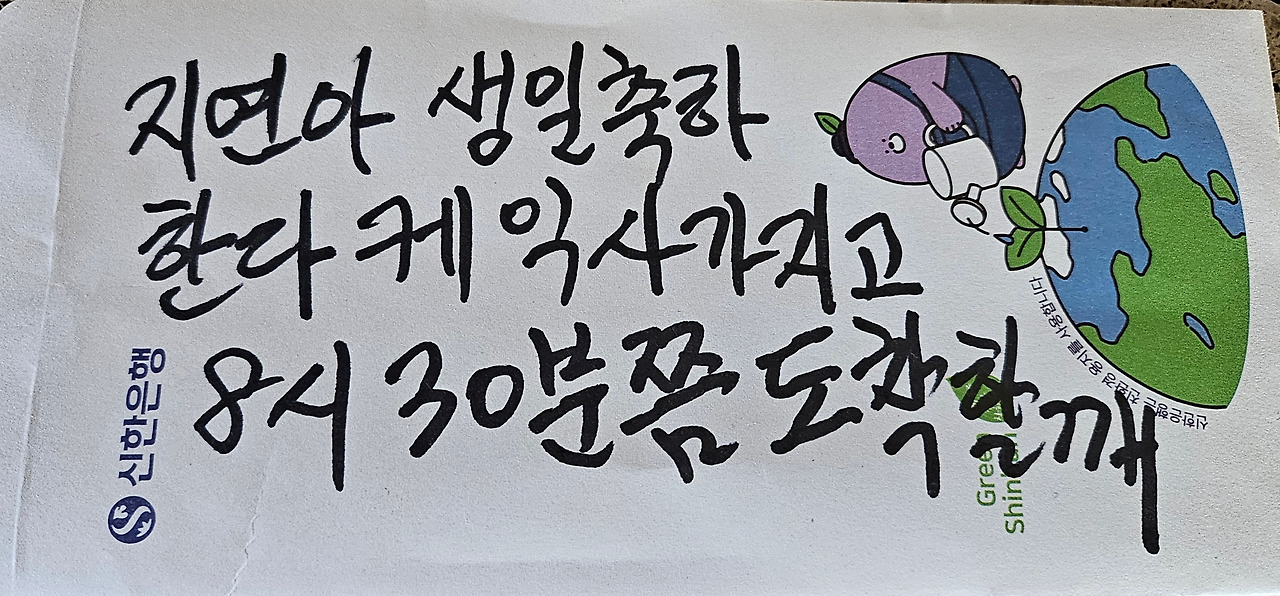 지연아 생일축하
한다 케익사가지고
8시 30분쯤 도착할께
신한은행
신한은행은 친환경 용지를 사용합니다
Green
Shin